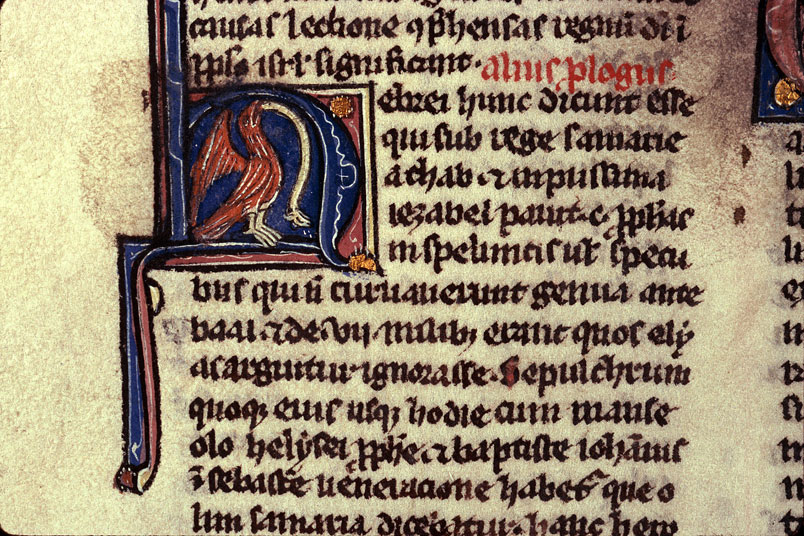 causas lectione ꝯphensas regnū dī ī
ip̄so isrl significant· alius p̱logus·
Hebrei hunc dicunt esse
qui sub rege samarie
achab ⁊ inpiissima
iezabel pauit·c· ꝓphās
in speluncis ul̄ specu
bus qui ñ curuauerunt genua ante
baal ⁊ de·vii·milibꝫ erant quos ely
as arguitur ignorasse· Sepulchrum
quoqꝫ eius usqꝫ hodie cum mause
olo helysei ꝓphe ⁊ baptiste iohānis
ī sebastē ueneracione habet͛ que o
lim samaria dicebatur· hanc hero